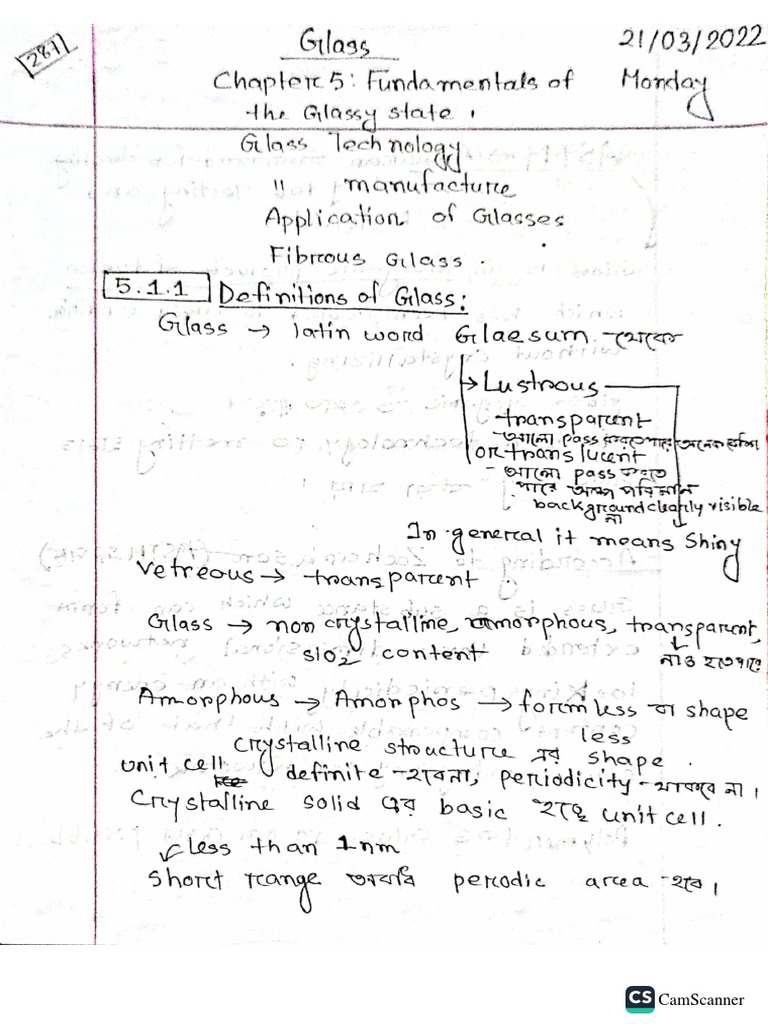 287
Glass
21/03/2022
Chapter 5: Fundamentals of
Monday
the Glassy state,
Glass Technology
" manufacture
Application of Glasses
Fibrous Glass.
5.1.1 Definitions of Glass:
Glass → latin word Glaesum থেকে
→ Lustrous
transparent
- আলো pass করতে পারে অনেক বেশি
or translucent
- আলো pass করতে
পারে অল্প পরিমান
background clearly visible
না
In general it means Shiny
Vetreous → transparent
Glass → non crystalline, amorphous, transparent,
SiO2 content
নাও হতে পারে
Amorphous → Amorphos → formless বা shape
less
crystalline structure এর shape.
unit cell
definite হবেনা, periodicity থাকবে না।
Crystalline solid এর basic হচ্ছে unit cell.
less than 1nm
Short range অবধি periodic area হবে।
CS CamScanner